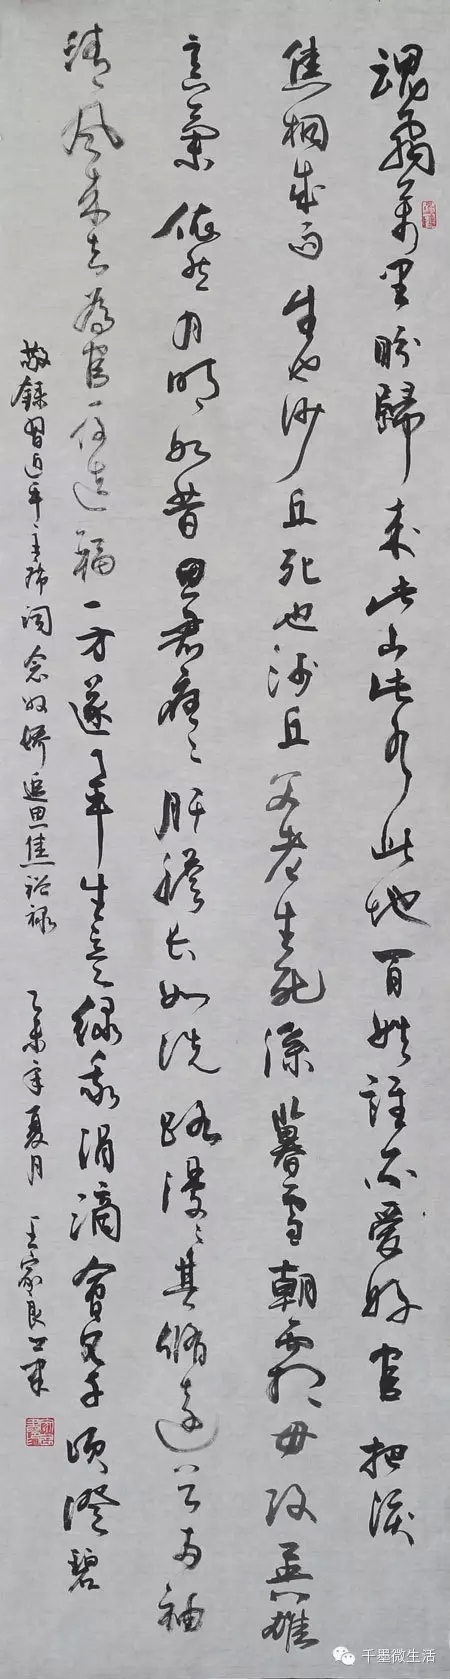 魂飛萬里盼歸來此山此水此地百姓誰不愛好官把淚
焦桐成雨生也沙丘死也沙丘父老生死係暮雪朝霜毋改英雄
意氣依然月明如昔思君夜夜肝膽長如洗路漫漫其脩遠兩袖
清風來去為官一任造福一方遂了平生意綠我涓滴會它千頃澄碧
敬錄習近平主席詞念奴嬌追思焦裕祿 乙未年夏月 王家良
千墨微生活